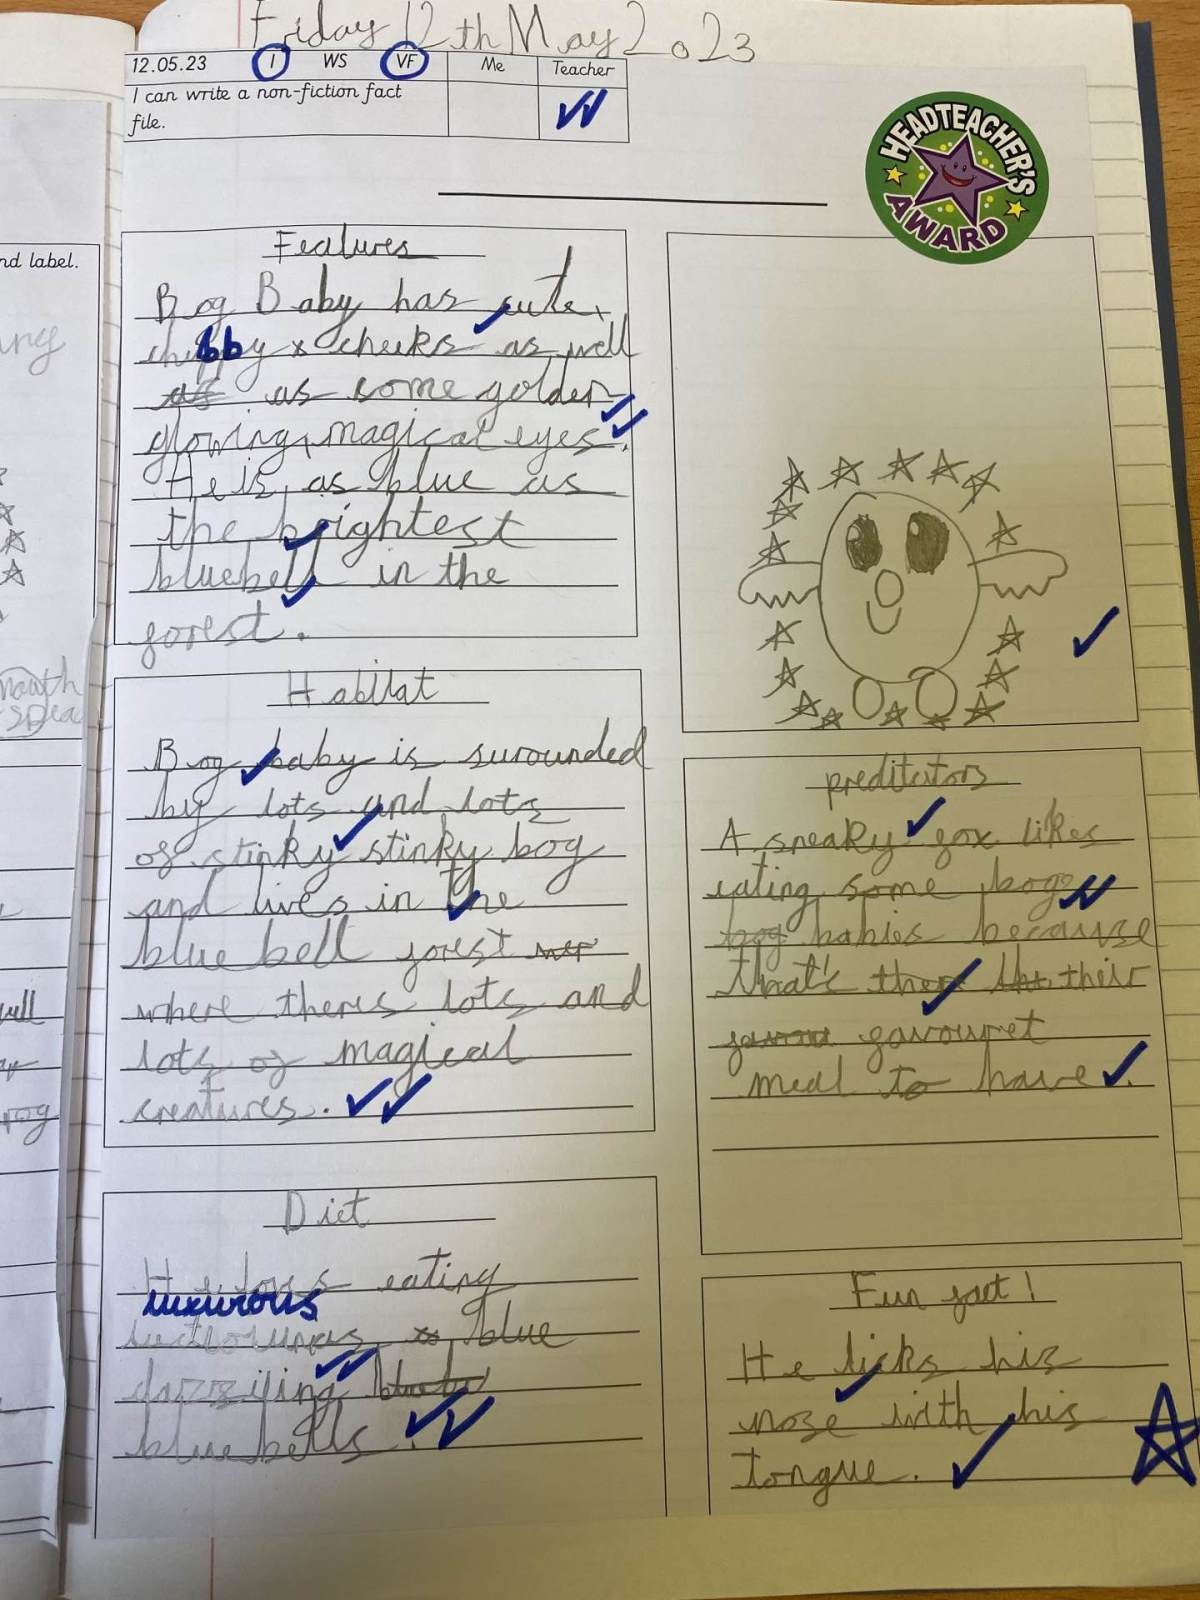 Friday 12th May 2023
12.05.23 I WS VF Me Teacher
I can write a non-fiction fact
file.
HEADTEACHER'S
AWARD
Features
Bog Baby has cute,
chubby cheeks as well
as as some golden
glowing, magical eyes.
He is as blue as
the brightest
bluebell in the
forest.
Habitat
Bog baby is surounded
by lots and lots
of stinky stinky bog
and lives in the
blue bell forest wer
where theres lots and
lots of magical
creatures.
Diet
He loves eating
luxurous
blue
dazziling blueb
blue bells.
preditators
A sneaky fox likes
eating some bog
bog babies because
that's there their
favouret
meal to have.
Fun fact!
He licks his
nose with his
tongue.
nd label.
mouth